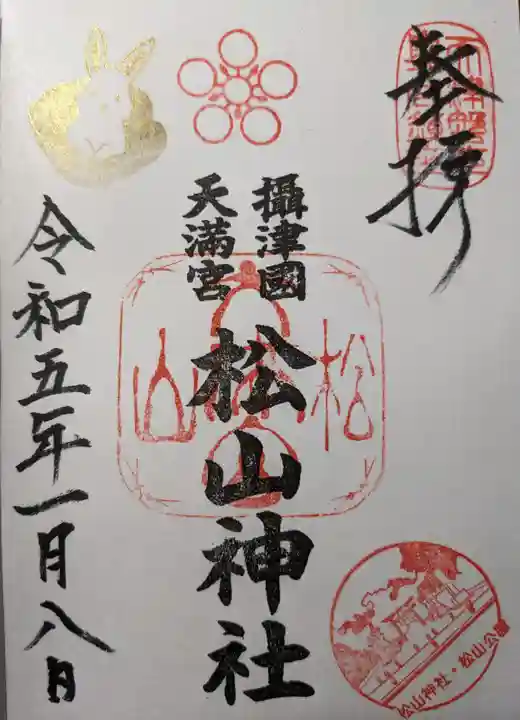 奉拝
攝津國
天満宮
松山神社
令和五年一月八日
松山
松山神社・松山公園